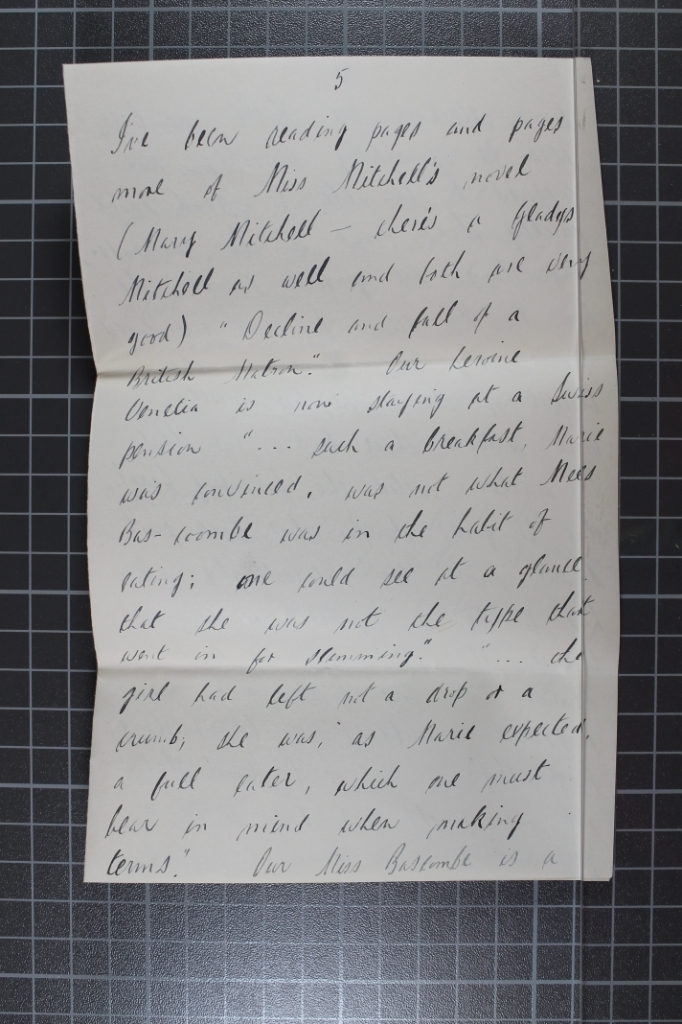 5
I've been reading pages and pages
more of Miss Mitchell's novel
(Mary Mitchell – there's a Gladys
Mitchell as well and both are very
good) "Decline and fall of a
British Matron." Our heroine
Venetia is now staying at a Swiss
pension "... such a breakfast, Marie
was convinced, was not what Mees
Bas-coombe was in the habit of
eating; one could see at a glance
that she was not the type that
went in for slimming." "... the
girl had left not a drop or a
crumb; she was, as Marie expected,
a full eater, which one must
bear in mind when making
terms." Our Miss Bascombe is a